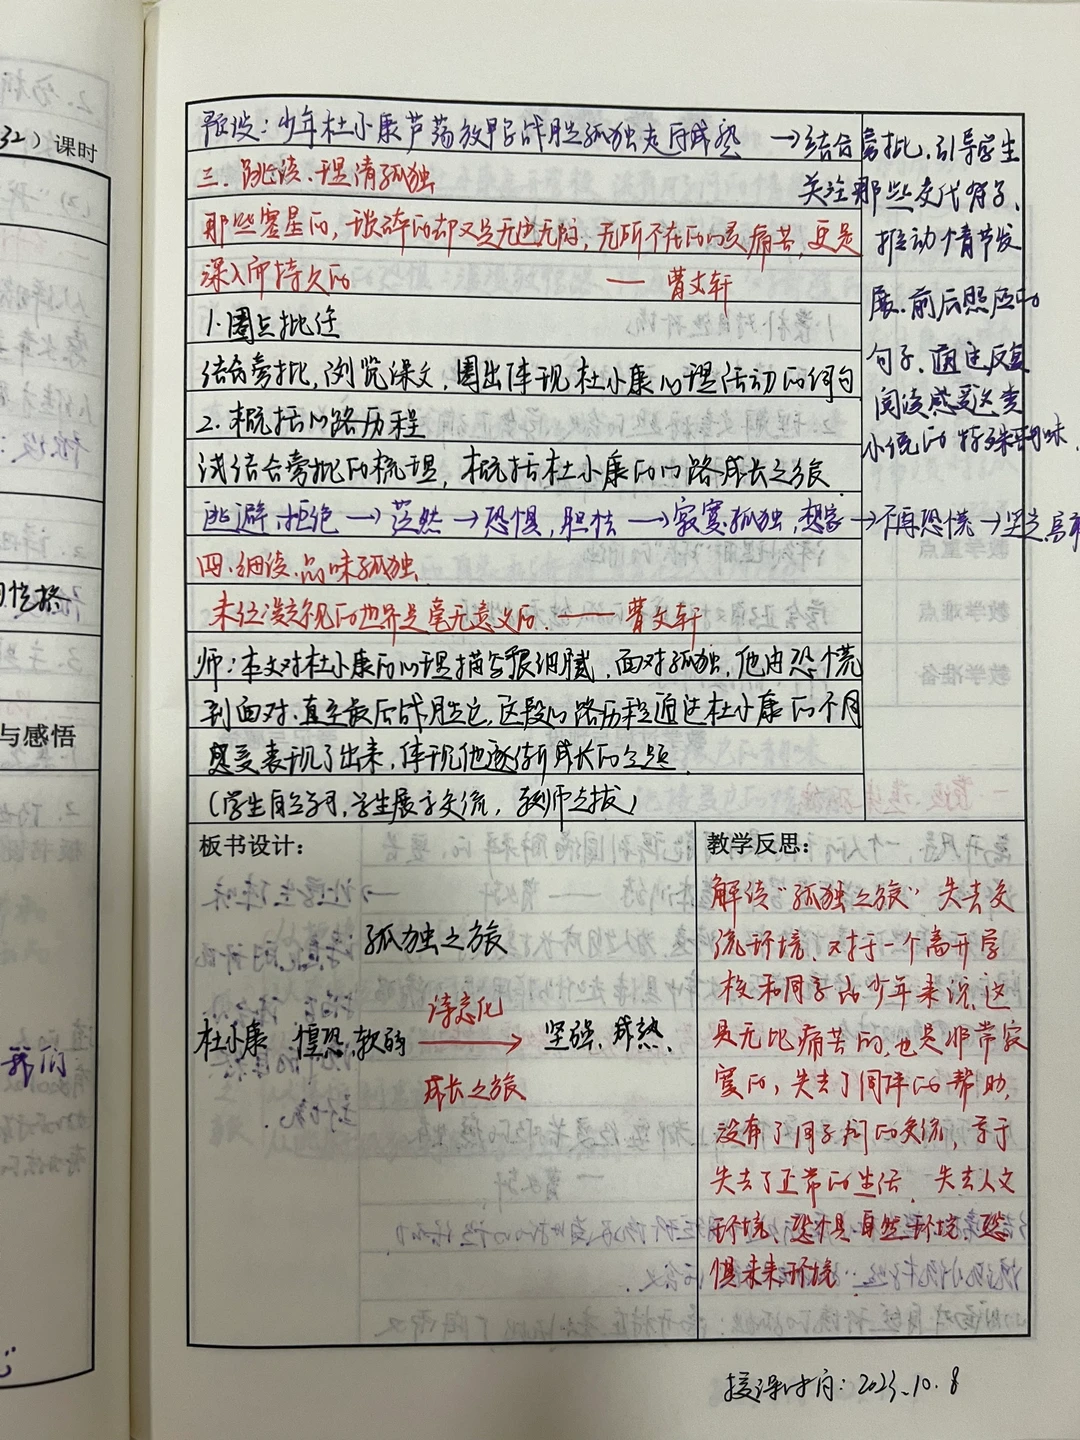 预设：少年杜小康芦荡放鸭战胜孤独走向成熟
三.跳读、理清孤独
那些零星的，琐碎的却又是无边无际，无所不在的痛苦，更是
深入而持久的 —— 曹文轩
1.圈点批注
结合旁批，浏览课文，圈出体现杜小康心理活动的词句
2.概括心路历程
试结合旁批的梳理，概括杜小康的心路成长之旅.
逃避、拒绝→茫然→恐惧，胆怯→寂寞，孤独，想家→不再恐慌→坚定
四.细读.品味孤独
未经凝视的世界是毫无意义的. —— 曹文轩
师：本文对杜小康的心理描写很细腻，面对孤独，他由恐慌
到面对、直至最后战胜它，这段心路历程通过杜小康的个月
感受表现了出来，体现他逐渐成长的主题.
(学生自学，学生展示交流，教师点拨)
→结合旁批.引导学生
关注那些交代
推动情节发
展、前后照应的
句子，通过反复
阅读感受这类
小说的特殊韵味.
板书设计：
孤独之旅
杜小康 惶恐、软弱 诗意化 坚强、成熟、
成长之旅
教学反思：
解读"孤独之旅"失去交
流环境、对于一个离开学
校和同学的少年来说，这
是无比痛苦的，也是非常寂
寞的，失去了同伴的帮助，
没有了同学间的交流，等于
失去了正常的生活、失去人文
环境、恐惧自然环境、恐
惧未来环境
授课时间：2023.10.8
32）课时
与感悟
我们
教学重点
教学难点
教学准备